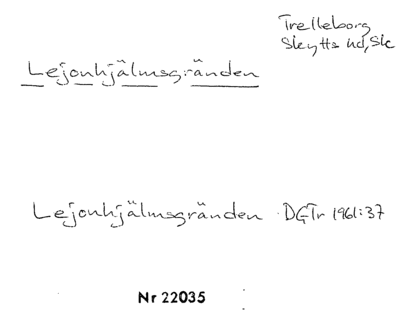 Trelleborg
Skytts hd, Sk
Lejonhjälmsgränden
Lejonhjälmsgränden DGTr 1961:37
Nr 22035